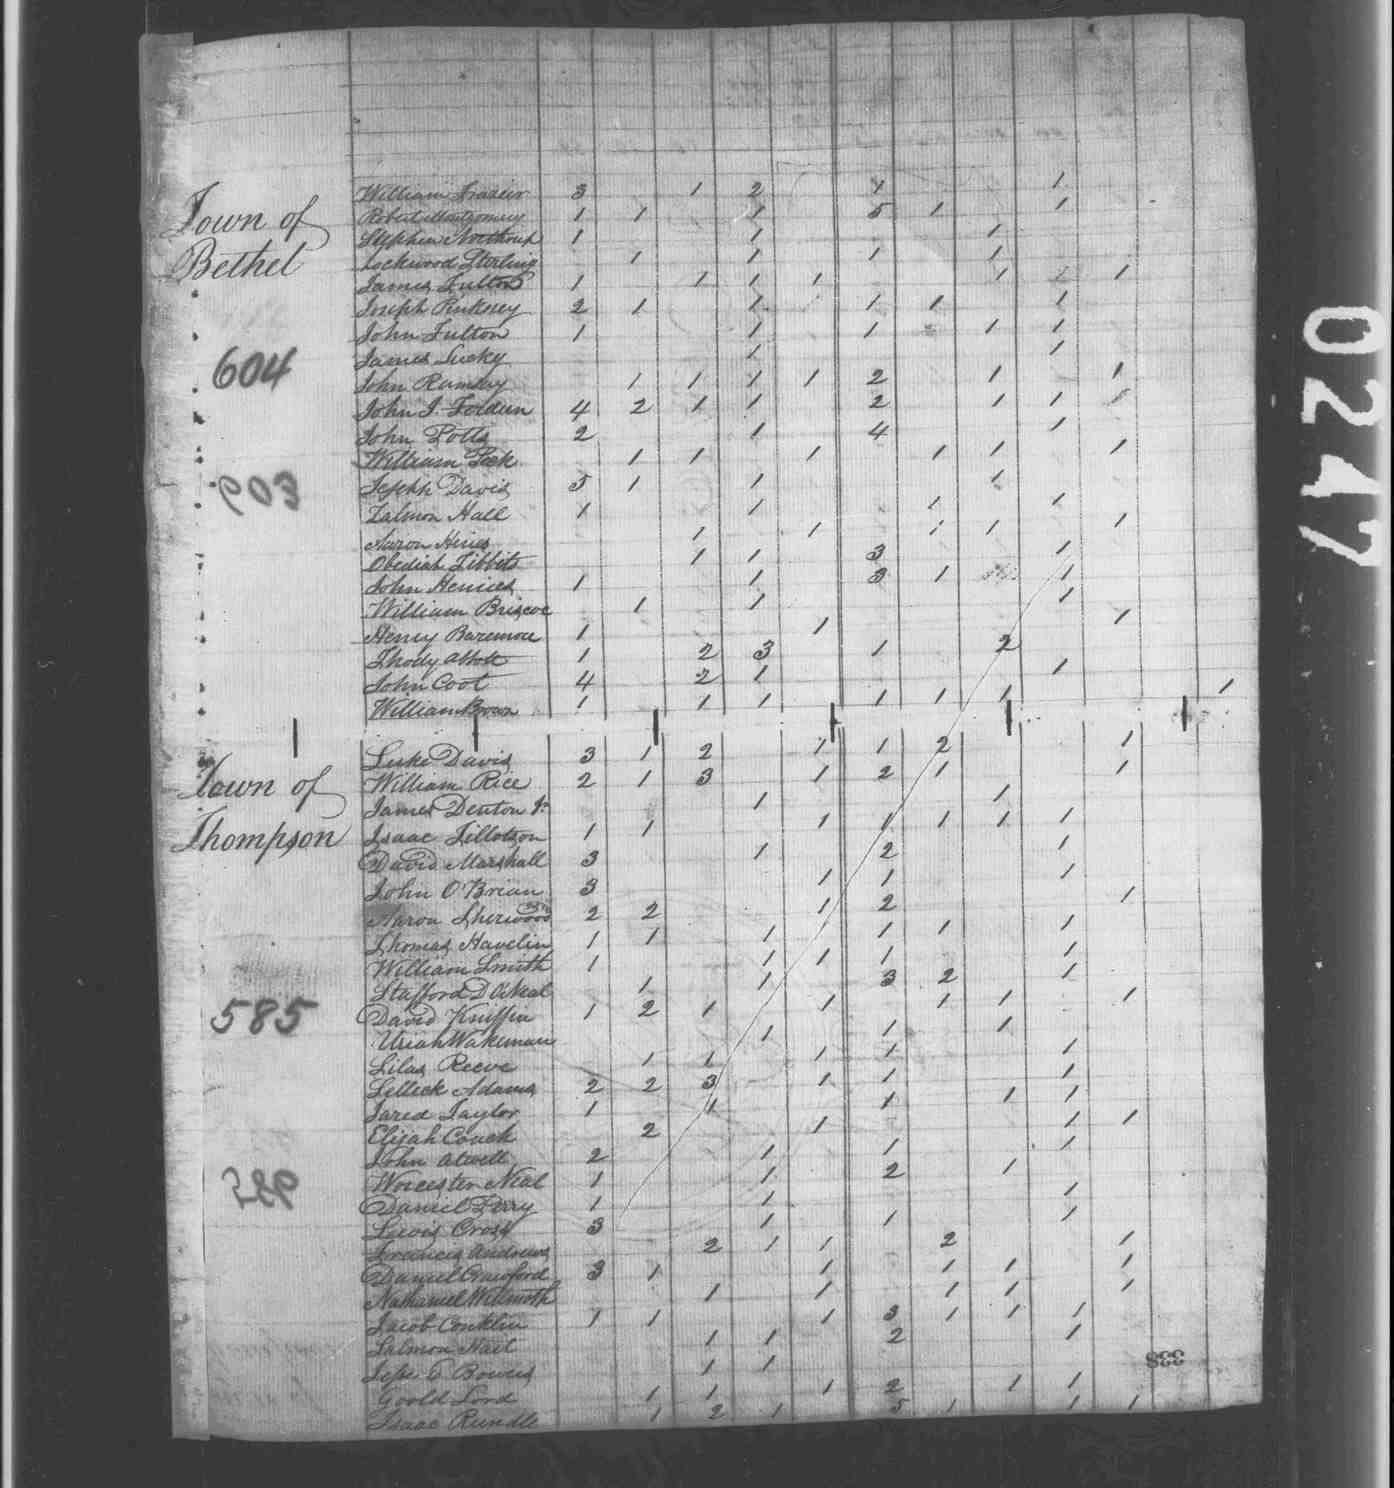 Town of
Bethel
604
William Frazier 3 1 2 4 1
Robert Montgomery 1 1 1 5 1 1
Stephen Northrup 1 1 1
Lockwood Sterling 1 1 1 1
James Fulton 1 1 1 1 1 1
Joseph Pinkney 2 1 1 1 1 1
John Fulton 1 1 1 1 1
James Lucky 1 1
John Ramsey 1 1 1 1 2 1 1
John J. 4 2 1 1 2 1 1
John Potts 2 1 4 1
William Peck 1 1 1 1 1 1
Joseph Davis 5 1 1 1
Zalmon Hall 1 1 1 1
Aaron Hines 1 1 1 1 1
Obediah Tibbits 1 1 3 1
John 1 1 3 1 1
William Briscoe 1 1 1
Henry Baremore 1 1 1
Abbott 1 2 3 1 2
John Coot 4 2 1 1
William Brown 1 1 1 1 1 1 1
Town of
Thompson
585
Luke Davis 3 1 2 1 1 2 1
William Rice 2 1 3 1 2 1 1
James Denton Jr 1 1
Isaac Tillotson 1 1 1 1 1 1 1
David Marshall 3 1 2 1
John O'Brian 3 1 1 1
Aaron Sherwood 2 2 1 2 1
Thomas Havelin 1 1 1 1 1 1
William Smith 1 1 1 1 1
Stafford D 1 1 3 2 1
David Kniffin 1 2 1 1 1 1 1
Uriah Wakeman 1 1 1
Silas Reeve 1 1 1 1 1
Selleck Adams 2 2 3 1 1 1
Jared Taylor 1 1 1 1 1
Elijah Couch 2 1 1 1
John Atwell 2 1 1 1
Worcester Neal 1 1 2 1
Daniel Perry 1 1 1
Lewis Cross 3 1 1 1
Francis Andrews 2 1 1 2 1
Daniel Crawford 3 1 1 1 1 1
Nathaniel Wilmoth 1 1 1 1 1
Jacob Conklin 1 1 1 3 1 1 1
Salmon Hait 1 1 2 1
Jesse C Bowers 1 1
Goold Lord 1 1 1 2 1 1
Isaac Rundle 1 2 1 5 1 1 1
338
0247